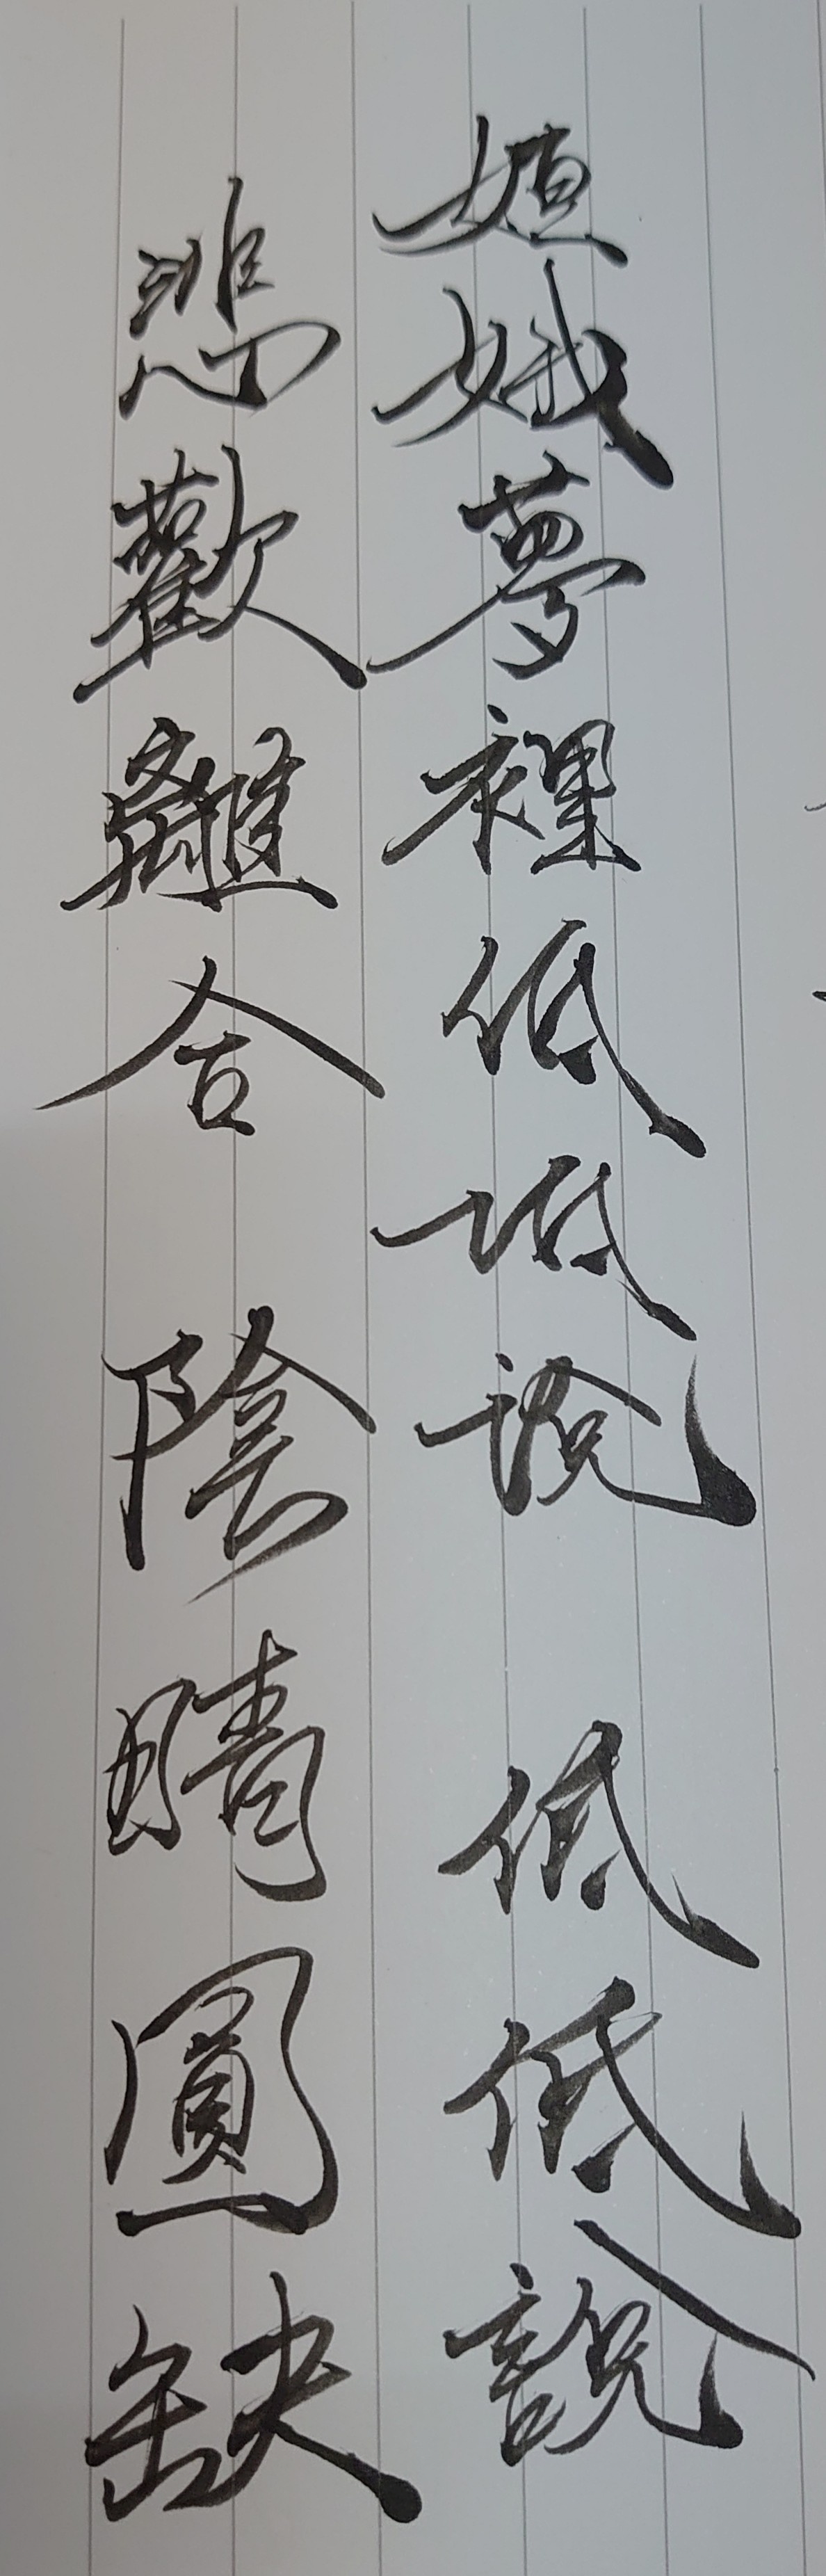 姮娥夢裡低低說 低低說
悲歡離合 陰晴圓缺